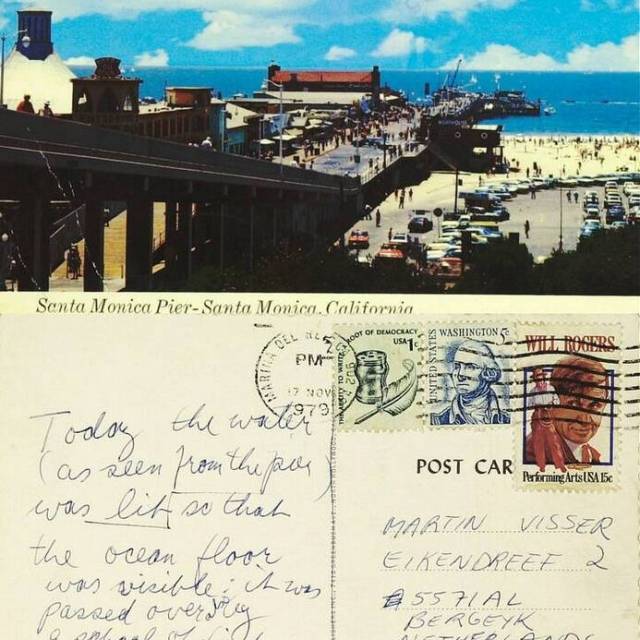 Santa Monica Pier-Santa Monica, California
MARINA DEL REY
PM
17 NOV
1979
902
ROOT OF DEMOCRACY
USA 1c
THE ABILITY TO WRITE
WASHINGTON 5c
UNITED STATES
WILL ROGERS
Performing Arts USA 15c
POST CAR
Today the water
(as seen from the pier)
was lit so that
the ocean floor
was visible; it was
passed over by
a school of
MARTIN VISSER
EIKENDREEF 2
5571 AL
BERGEYK
NETHERLANDS